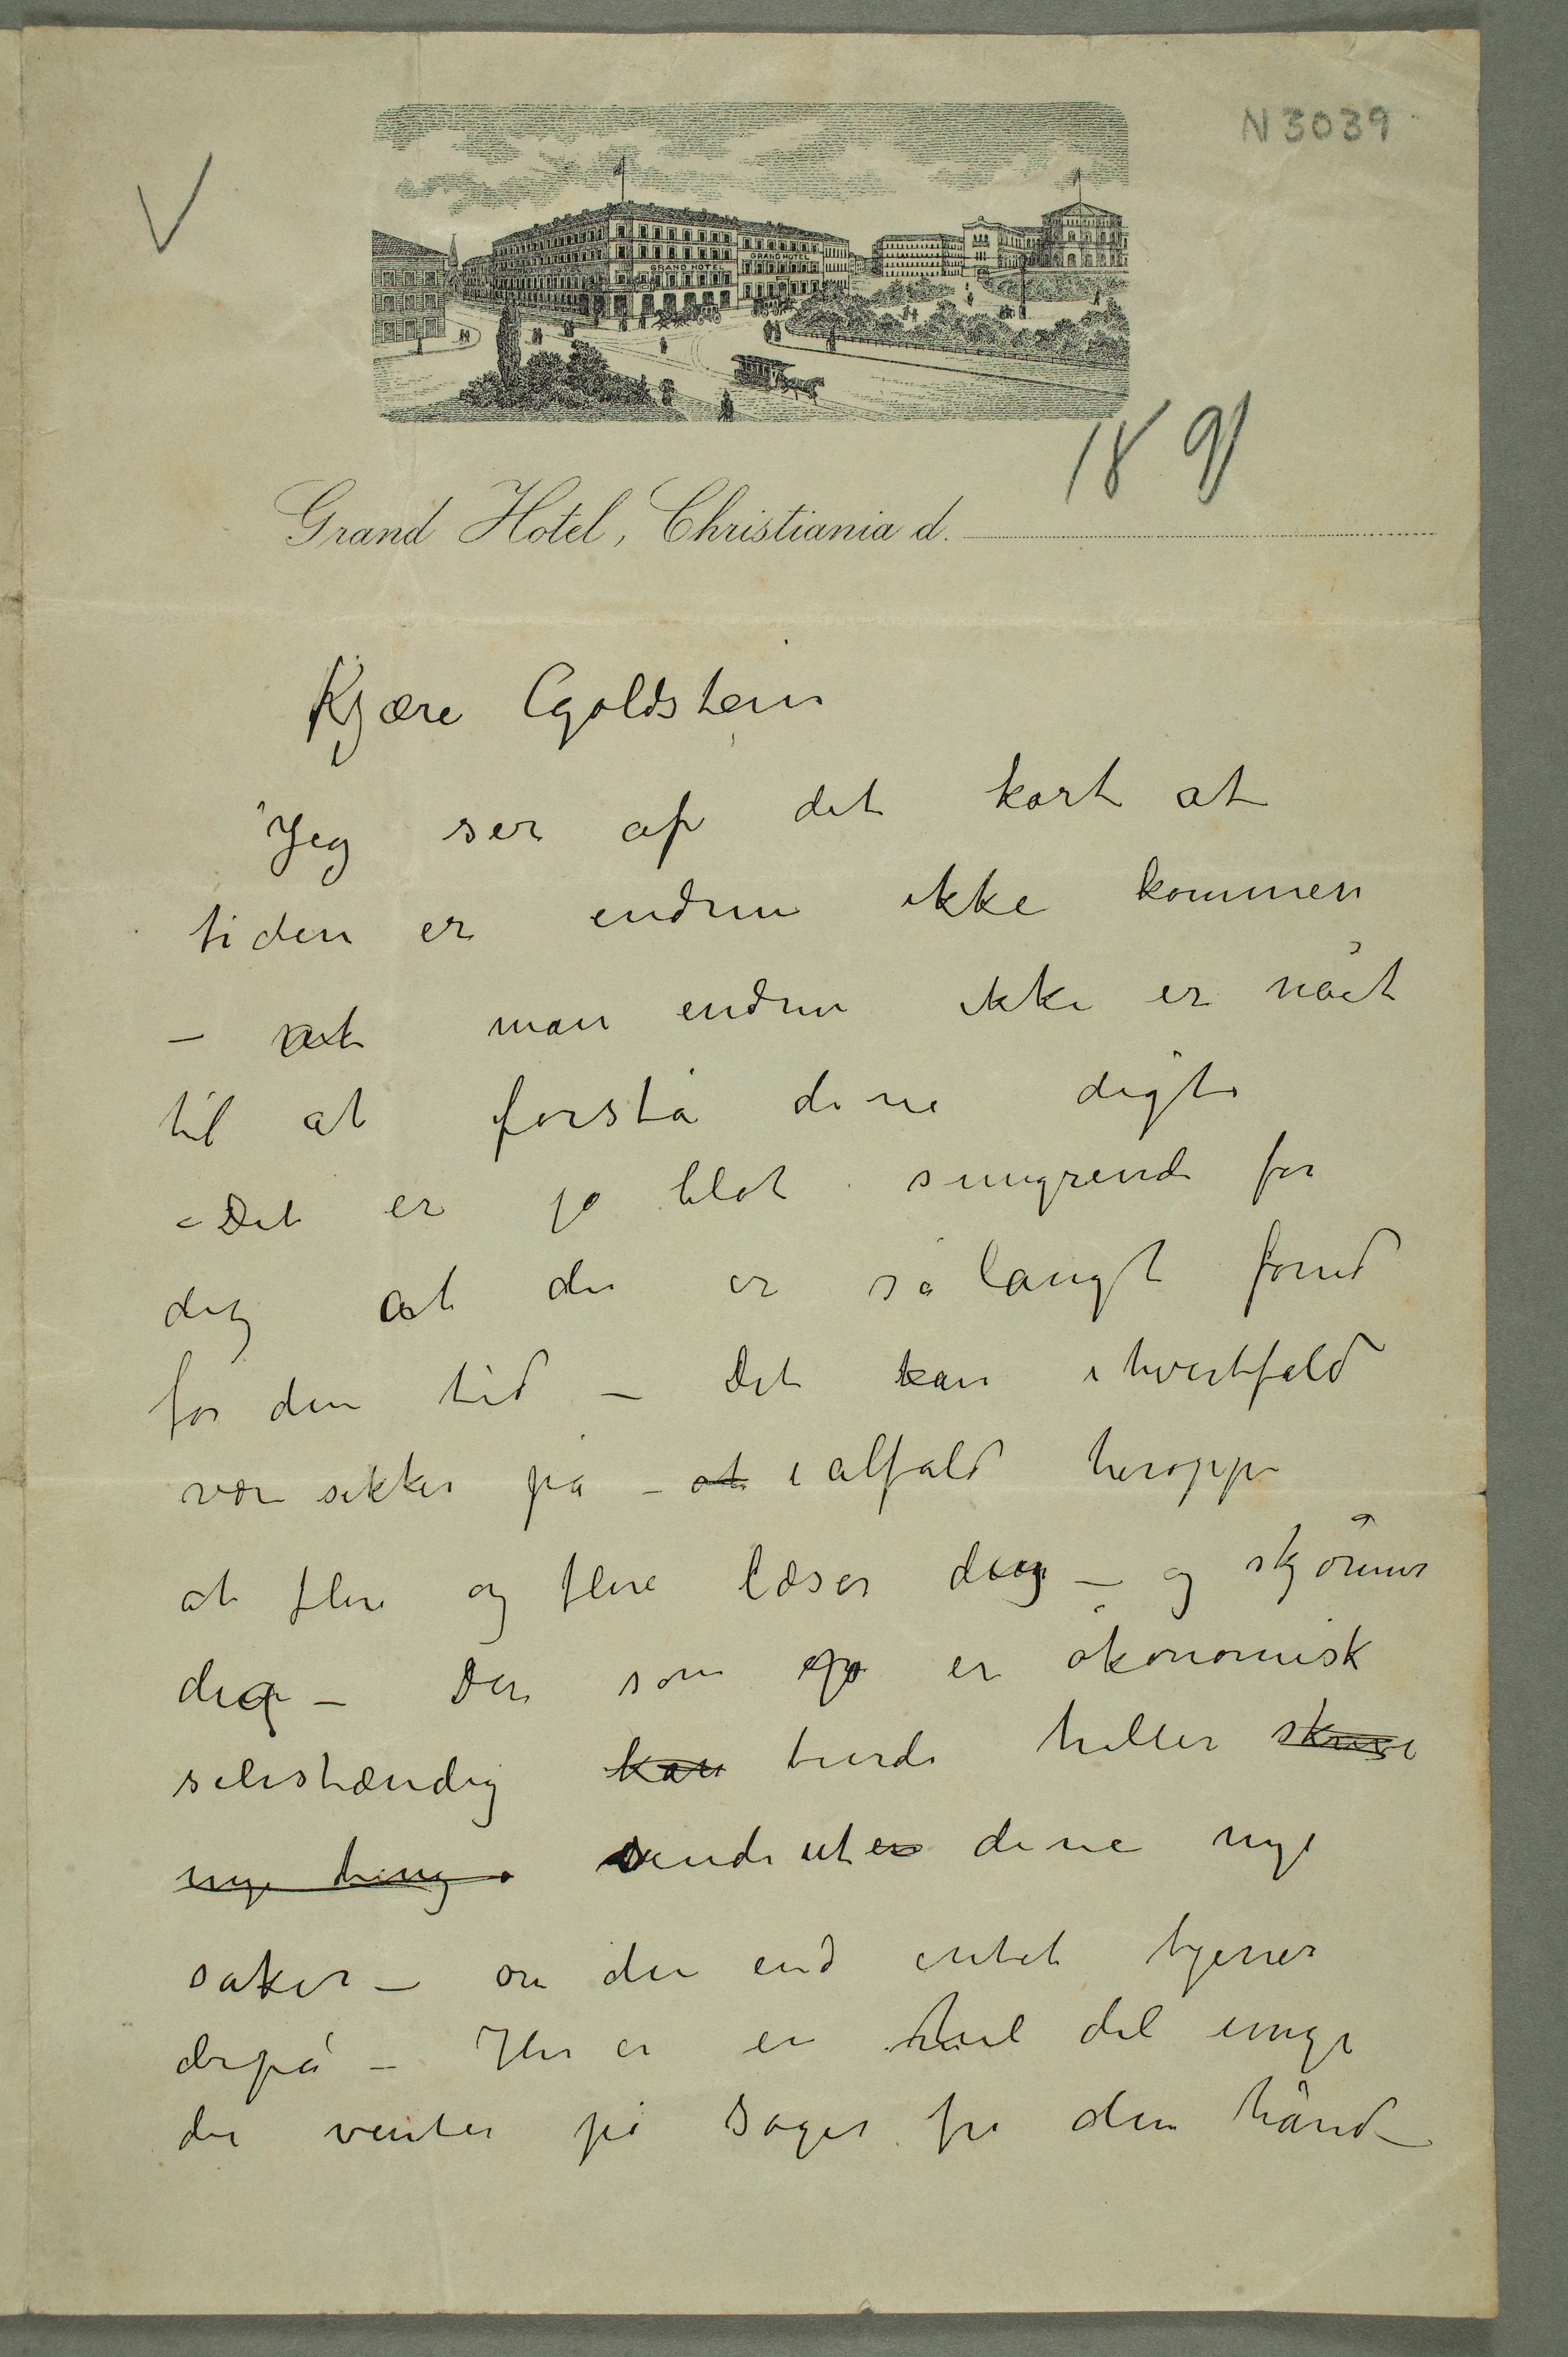 N 3039
V
GRAND HOTEL GRAND HOTEL
1891
Grand Hotel, Christiania d.
Kjære Goldstein
Jeg ser af dit kort at
tiden er endnu ikke kommen
– at man endnu ikke er nået
til at forstå dine digte
– Det er jo blot smigrende for
dig at du er så langt forud
for din tid – Det kan i hvertfald
være sikker på – at i alfald heroppe
at flere og flere læser dig – og skjønner
dig – Du som er økonomisk
selvstændig kan burde heller skrive
nye ting sende ut dine nye
saker – om du end intet tjener
derpå – Her er en hel del unge
der venter på sager fra din hånd –